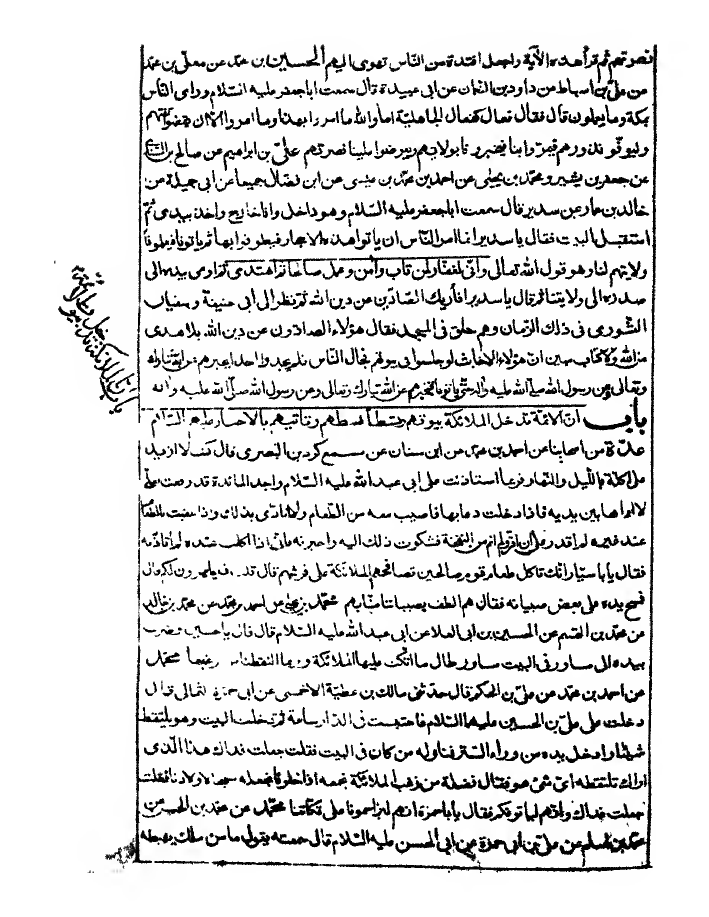 نصرتهم ثم قرأ هذه الآية واجعل افئدة من الناس تهوى اليهم الحسين بن محمد عن معلى بن محمد
عن على بن اسباط عن داود بن النعمان عن ابى عبيدة قال سمعت اباجعفر عليه السلام وراى الناس
بمكة وما يعملون قال فقال فعال كفعال الجاهلية اما والله ما امروا بهذا وما امروا الا ان يقضوا تفثهم
وليوفوا نذورهم فيمروا بنا فيخبرونا بولايتهم ويعرضوا علينا نصرتهم على بن ابراهيم عن صالح بن
عن جعفر بن بشير ومحمد بن يحيى عن احمد بن محمد بن عيسى عن ابن فضال جميعا عن ابى جميلة عن
خالد بن عمار عن سدير قال سمعت اباجعفر عليه السلام وهو داخل وانا خارج واخذ بيدى ثم
استقبل البيت فقال يا سدير انما امر الناس ان ياتوا هذه الاحجار فيطوفوا بها ثم ياتونا فيعلمونا
ولايتهم لنا وهو قول الله تعالى وانى لغفار لمن تاب وآمن وعمل صالحا ثم اهتدى ثم اومى بيده الى
صدره الى ولايتنا ثم قال يا سدير افاريك الصادين عن دين الله ثم نظر الى ابى حنيفة وسفيان
الثورى فى ذلك الزمان وهم حلق فى المسجد فقال هؤلاء الصادون عن دين الله بلا هدى
من الله ولا كتاب مبين ان هؤلاء الاخابث لو جلسوا فى بيوتهم فجال الناس فلم يجدوا احدا يخبرهم عن الله تبارك
وتعالى وعن رسول الله صلى الله عليه واله حتى ياتونا فنخبرهم عن الله تبارك وتعالى وعن رسول الله صلى الله عليه واله
باب ان الائمة تدخل الملائكة بيوتهم وتطأ بسطهم وتأتيهم بالاخبار عليهم السلام
عدة من اصحابنا عن احمد بن محمد عن ابن سنان عن مسمع كردين البصرى قال كنت لا ازيد
على اكلة بالليل والنهار فربما استاذنت على ابى عبد الله عليه السلام واجد المائدة قد رفعت لعلى
لا اراها بين يديه فاذا دخلت دعا بها فاصيب معه من الطعام ولا اتاذى بذلك واذا عقبت بالطعام
عند غيره لم اقدر على ان اقر ولم انم من النفخة فشكوت ذلك اليه واخبرته بانى اذا اكلت عنده لم اتاذ به
فقال يا ابا سيار انك تاكل طعام قوم صالحين تصافحهم الملائكة على فرشهم قال قلت ويظهرون لكم قال
فمسح يده على بعض صبيانه فقال هم الطف بصبياننا منا بهم محمد بن يحيى عن احمد بن محمد عن محمد بن خالد
عن محمد بن القسم عن الحسين بن ابى العلا عن ابى عبد الله عليه السلام قال قال يا حسين وضرب
بيده الى مساور فى البيت مساور طال ما اتكت عليها الملائكة وربما التقطنا من زغبها محمد
عن احمد بن محمد عن على بن الحكم قال حدثنى مالك بن عطية الاحمسى عن ابى حمزة الثمالى قال
دخلت على على بن الحسين عليهما السلام فاحتبست فى الدار ساعة ثم دخلت البيت وهو يلتقط
شيئا وادخل يده من وراء الستر فناوله من كان فى البيت فقلت جعلت فداك هذا الذى
اراك تلتقطه اى شئ هو فقال فضلة من زغب الملائكة نجمعه اذا خلونا نجعله سيحا لاولادنا فقلت
جعلت فداك وانهم لياتونكم فقال يا ابا حمزة انهم ليزاحمونا على تكأتنا محمد عن محمد بن الحسن عن
محمد بن اسلم عن على بن ابى حمزة عن ابى الحسن عليه السلام قال سمعته يقول ما من ملك يهبطه